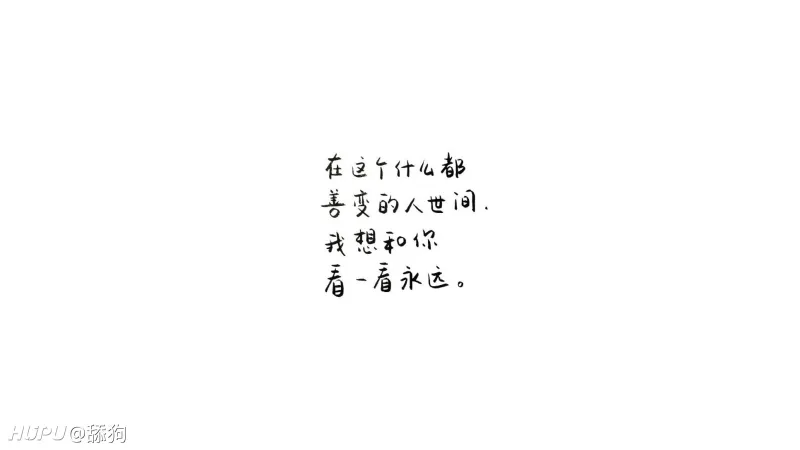 在这个什么都
善变的人世间.
我想和你
看一看永远。
HUPU@舔狗